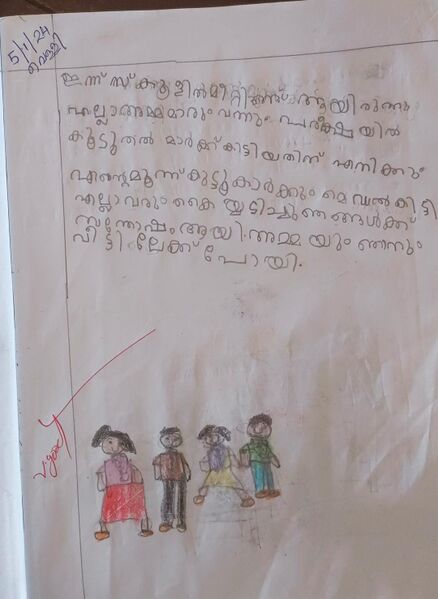 5/1/24
വെള്ളി
ഇന്ന് സ്ക്കൂളിൽ മീറ്റിങ്ങ് ആയിരുന്നു
എല്ലാ അമ്മമാരും വന്നും പരീക്ഷയിൽ
കൂടുതൽ മാർക്ക് കിട്ടിയതിന് എനിക്കും
എന്റെ മൂന്ന് കുട്ടുകാർക്കും മെഡൽ കിട്ടി
എല്ലാവരും കൈ യ്യടിച്ചു ഞങ്ങൾക്ക്
സന്തോഷം ആയി. അമ്മ യും ഞാനും
വീട്ടി ലേക്ക് പോയി.
v.good